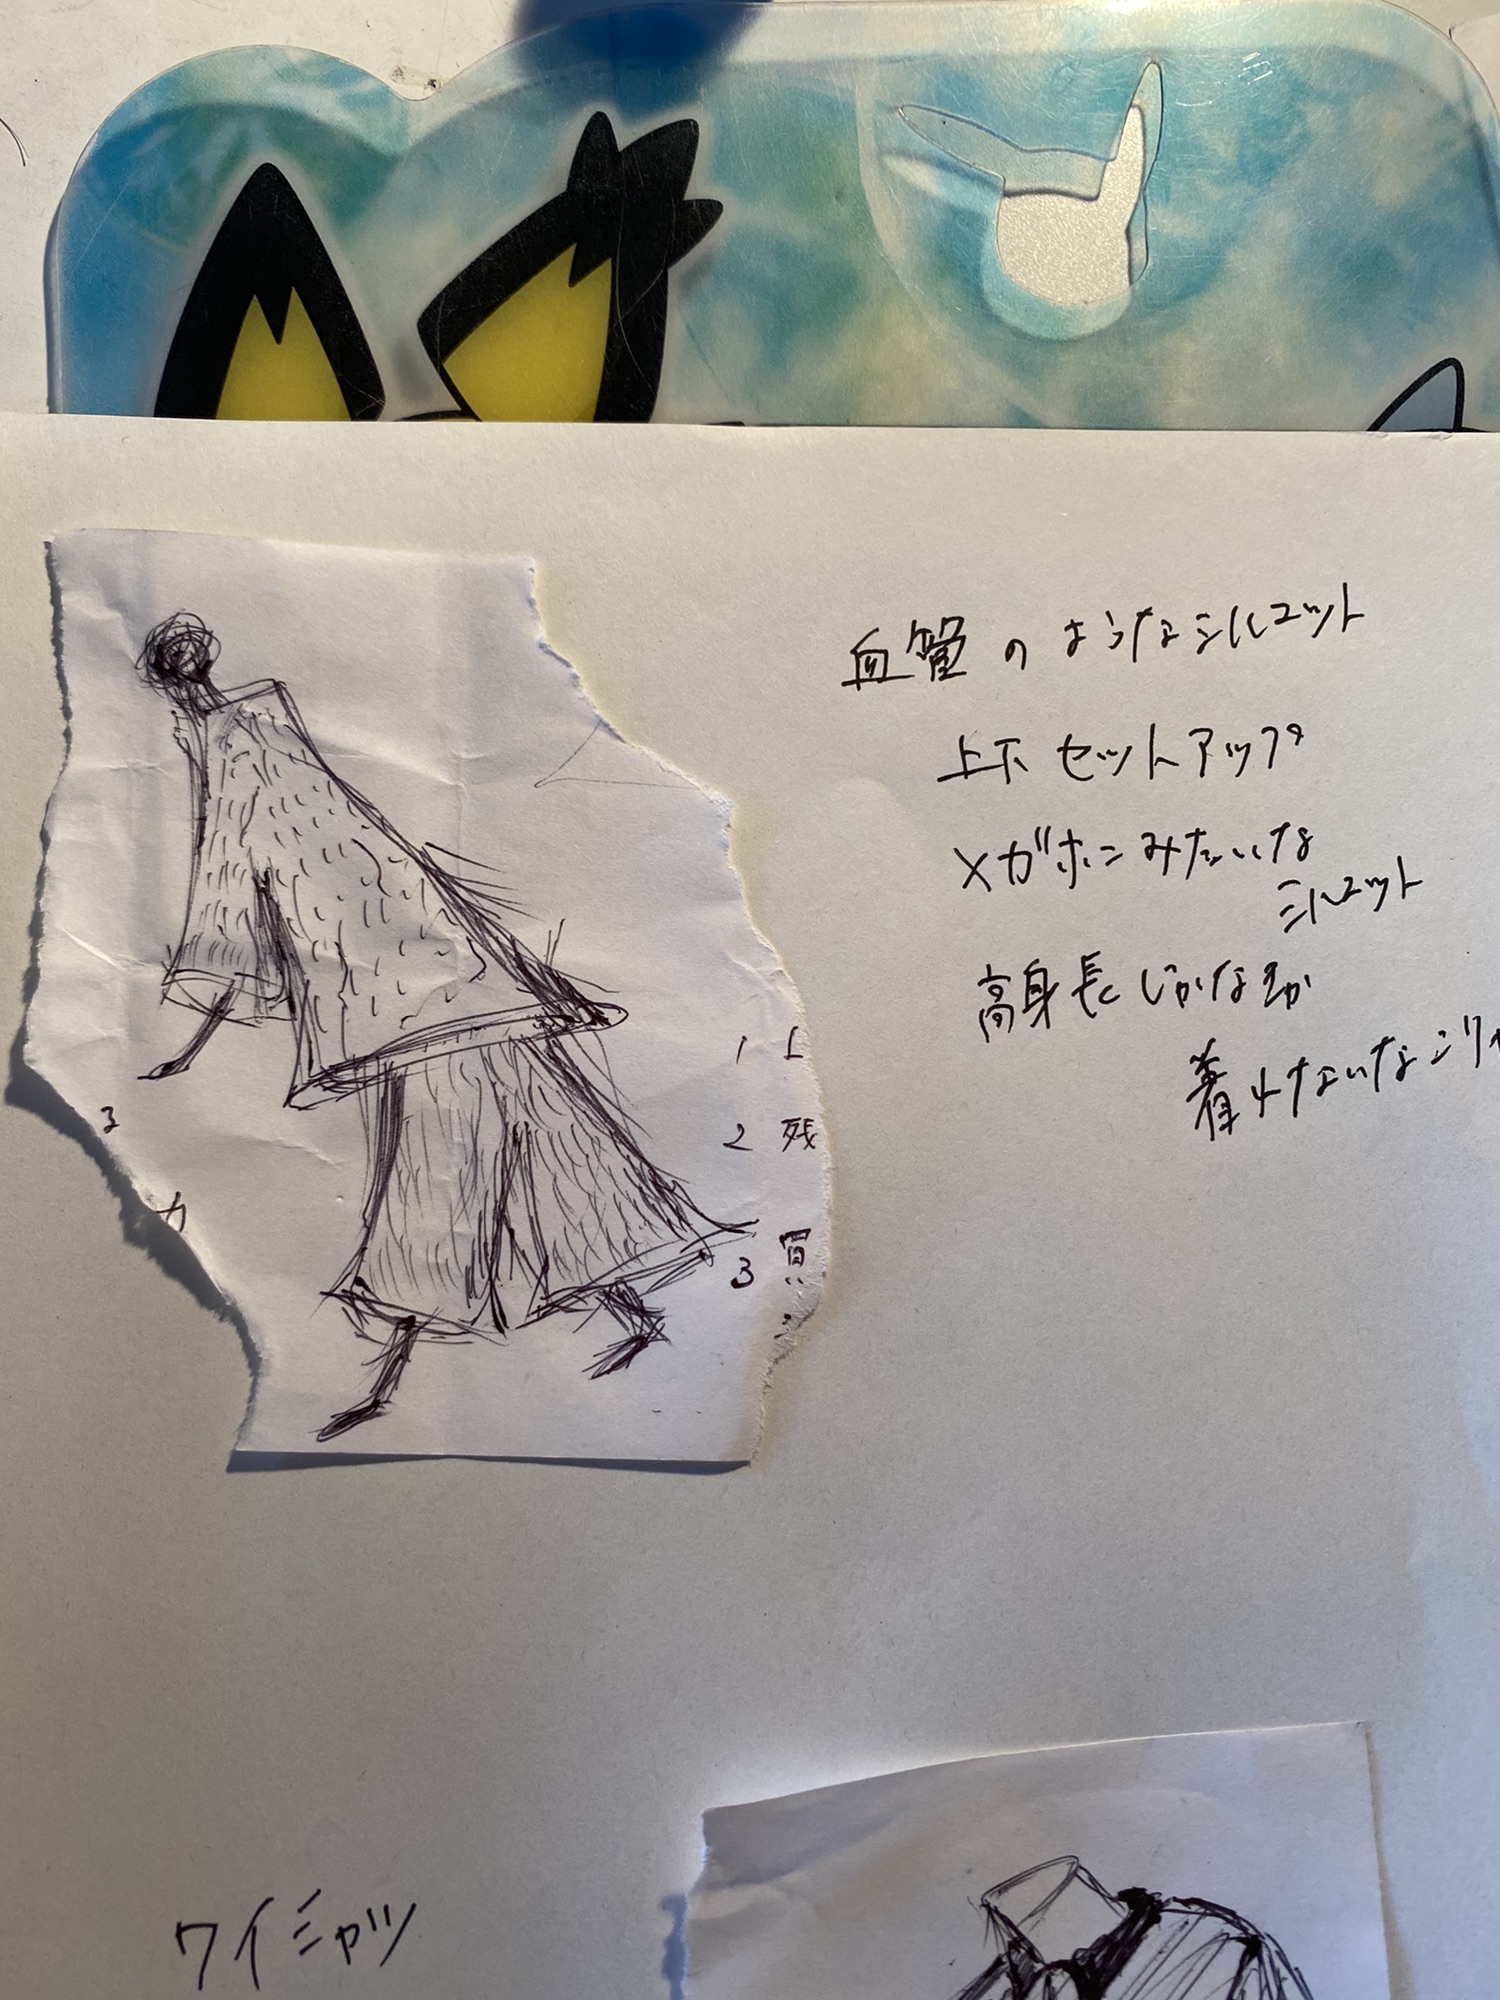 血管のようなシルエット
上下セットアップ
メガホンみたいな
シルエット
高身長しかなまか
着れないなこりゃ
1 上
2 残
3 買
3
カ
ワイシャツ